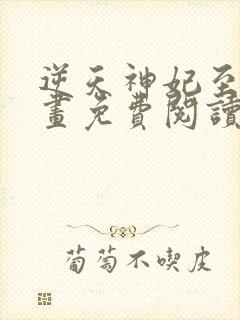 逆天神妃至
畫免費閱讀
葡萄不喫皮